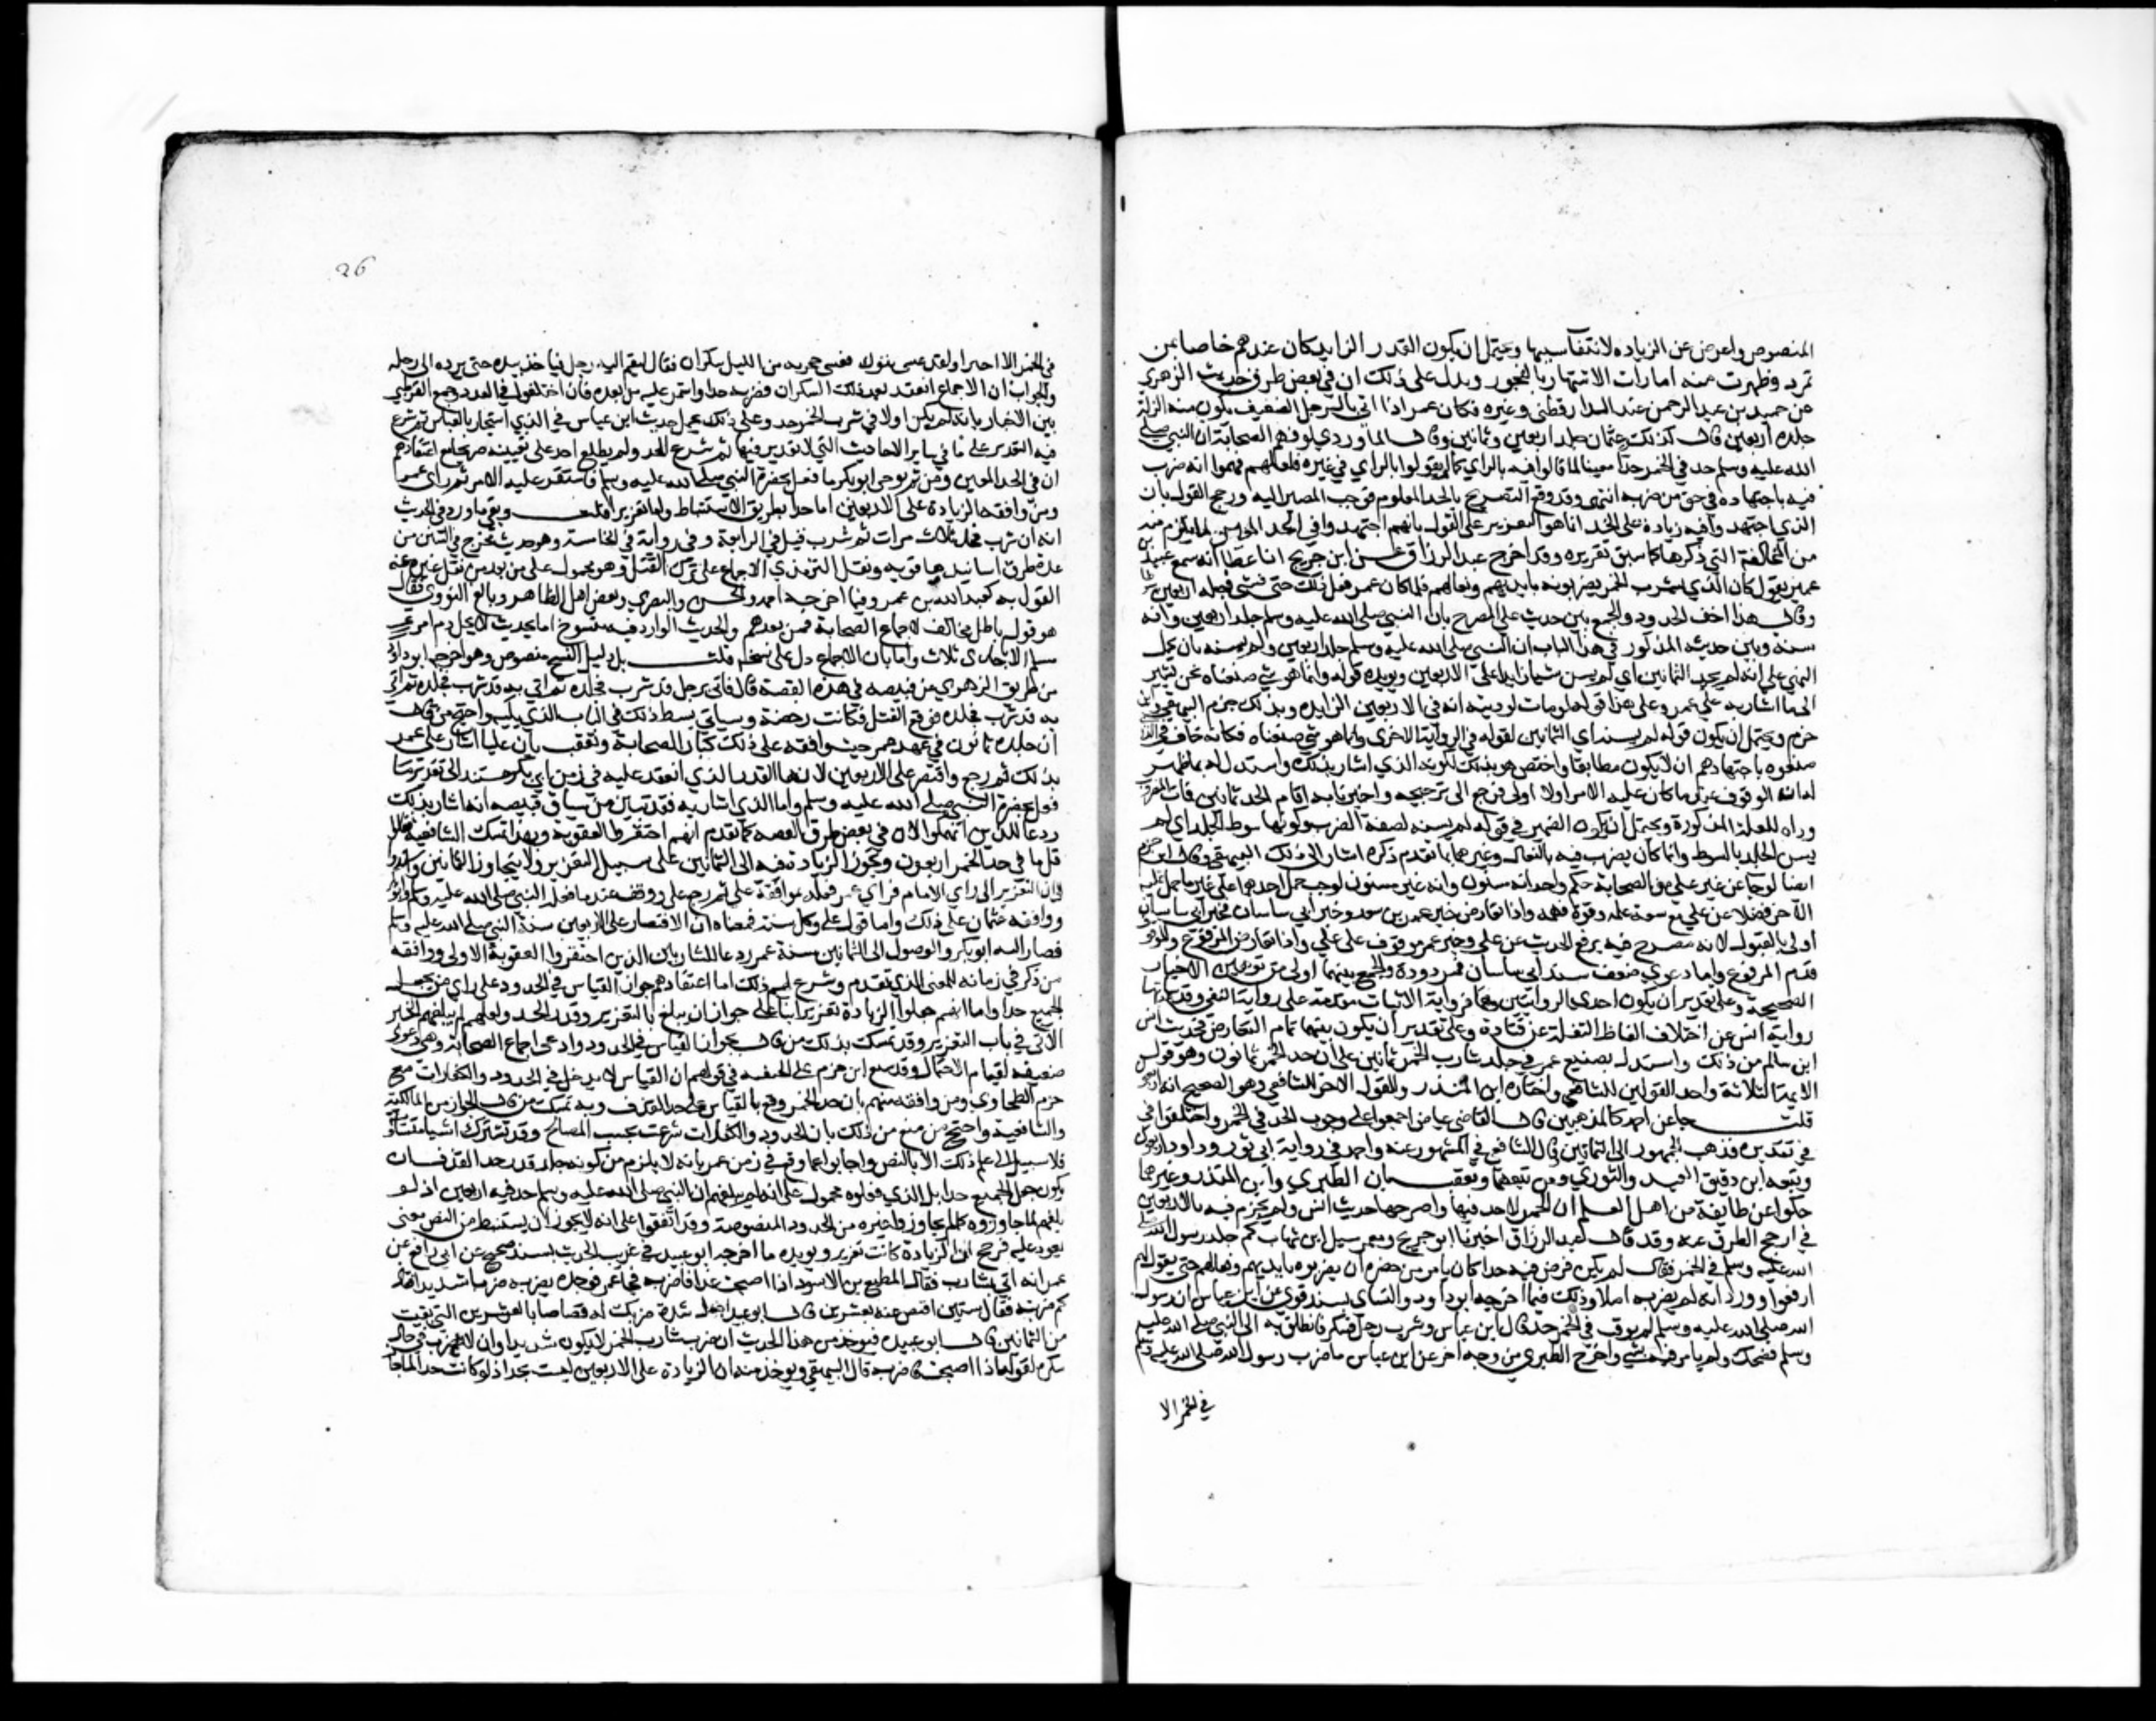 المنصوص واعرض عن الزياده لانتفا سببها ويحتمل ان يكون القدر الزايد كان عندهم خاصا بمن
تمرد وظهرت منه امارات الاشتهار بالفجور ويدل على ذلك ان في بعض طرق حديث الزهري
عن حميد بن عبد الرحمن عند الدارقطني وغيره فكان عمر اذا اتى بالرجل الضعيف تكون منه الزلة
جلده اربعين قال كذلك عثمان جلد اربعين وثمانين وقال الماوردي لو فهم الصحابة ان النبي صلى
الله عليه وسلم حد في الخمر حدا معينا لما قالوا فيه بالراي كما لم يقولوا بالراي في غيره فلعلهم فهموا انه ضرب
فيه باجتهاده في حق من ضربه انتهى وقد وقع التصريح بالحد المعلوم فوجب المصير اليه ورجح القول بان
الذي اجتهدوا فيه زيادة على الحد انما هو التعزير على القول بانهم اجتهدوا في الحد المعين لما يلزم منه
من المخالفة التي ذكرها كما سبق تقريره وقد اخرج عبد الرزاق عن ابن جريج انا عطا انه سمع عبيد بن
عمير يقول كان الذي يشرب الخمر يضربونه بايديهم ونعالهم فلما كان عمر فعل ذلك حتى خشي فجعله اربعين
وقال هذا اخف الحدود والجمع بين حديث علي المصرح بان النبي صلى الله عليه وسلم جلد اربعين وانه
سنه وبين حديثه المذكور في هذا الباب ان النبي صلى الله عليه وسلم جلد اربعين ولم يسنه بان يحمل
النفي على انه لم يحد الثمانين اي لم يسن شيئا زايدا على الاربعين ويويده قوله وانما هو شي صنعناه نحن يشير
الى ما اشار به على عمر وعلى هذا قوله لو مات لوديته اي في الاربعين الزايده وبذلك جزم البيهقي وابن
حزم ويحتمل ان يكون قوله لم يسنه اي الثمانين لقوله في الرواية الاخرى وانما هو شي صنعناه فكانه خاف من الذي
صنعوه باجتهادهم ان لا يكون مطابقا واختص هو بذلك لكونه الذي اشار بذلك واستدل له ثم ظهر
له ان الوقوف عند ما كان عليه الامر اولا اولى فرجع الى ترجيحه واخبر بانه لو اقام الحد ثمانين فمات المضروب
وداه للعلة المذكورة ويحتمل ان يكون الضمير في قوله لم يسنه لصفة الضرب وكونها بسوط الجلد اي لم
يسن الجلد بالسوط وانما كان يضرب فيه بالنعال وغيرها مما تقدم ذكره اشار الى ذلك البيهقي وقال ابن حزم
ايضا لو جا عن غير علي من الصحابة حكم واحد انه مسنون وانه غير مسنون لوجب حمل احدهما على غير ما حمل عليه
الاخر فضلا عن علي مع سعة علمه وقوة فهمه واذا تعارض خبر عمير بن سعد وخبر ابي ساسان فخبر ابي ساسان
اولى بالقبول لانه مصرح فيه برفع الحديث عن علي وخبر عمير موقوف على علي واذا تعارض المرفوع والموقوف
قدم المرفوع واما دعوى ضعف سند ابي ساسان فمردودة والجمع بينهما اولى من توهين الاخبار
الصحيحة وعلى تقدير ان يكون احدى الروايتين وهما فرواية الاثبات مقدمة على رواية النفي وقد ساعدتها
رواية انس عن اختلاف الفاظ النقلة عن قتادة وعلى تقدير ان يكون بينهما تمام التعارض فحديث انس
ابن سالم من ذلك واستدل بصنيع عمر في جلد شارب الخمر ثمانين على ان حد الخمر ثمانون وهو قول
الايمة الثلاثة واحد القولين للشافعي واختاره ابن المنذر والقول الاخر للشافعي وهو الصحيح انه اربعون
قلت جا عن احمد كالمذهبين قال القاضي عياض اجمعوا على وجوب الحد في الخمر واختلفوا في
في تقديره فذهب الجمهور الى الثمانين قال الشافعي في المشهور عنه واحمد في رواية ابي ثور وداود اربعون
وتبعه ابن دقيق العيد والنووي ومن تبعهما وتعقب بان الطبري وابن المنذر وغيرهما
حكوا عن طايفة من اهل العلم ان الخمر لا حد فيها واصرحها حديث انس ولم يجزم فيه بالاربعين
في ارجح الطرق عنه وقد قال عبد الرزاق اخبرنا ابن جريج ومعمر سيل ابن شهاب كم جلد رسول الله صلى
الله عليه وسلم في الخمر فقال لم يكن فرض فيه حدا كان يامر من حضره ان يضربوه بايديهم ونعالهم حتى يقول لهم
ارفعوا وورد انه لم يضربه اصلا وذلك فيما اخرجه ابو داود والنساي بسند قوي عن ابن عباس ان رسول
الله صلى الله عليه وسلم لم يوقت في الخمر حدا قال ابن عباس وشرب رجل فسكر فانطلق به الى النبي صلى الله عليه
وسلم فضحك ولم يامر فيه بشي واخرج الطبري من وجه اخر عن ابن عباس ما ضرب رسول الله صلى الله عليه وسلم
في الخمر الا
26
في الخمر الا اخيرا ولقد غزا تبوك فغشي حجرته من الليل سكران فقال ليقم اليه رجل فياخذ بيده حتى يرده الى رحله
والجواب ان الاجماع انعقد بعد ذلك السكران فضربه حدا واستمر عليه من بعده فان اختلفوا في العدد وجمع القرطبي
بين الاخبار بانه لم يكن اولا في شرب الخمر حد وعلى ذلك يحمل حديث ابن عباس في الذي استجار بالعباس ثم شرع
فيه التعزير على ما في ساير الاحاديث التي لا تقدير فيها ثم شرع الحد ولم يطلع احد على تعيينه صريحا مع اعتقادهم
ان في الحد المعين ومن ثم توخى ابو بكر ما فعل بحضرة النبي صلى الله عليه وسلم فاستقر عليه الامر ثم راى عمر
ومن وافقه الزيادة على الاربعين اما حدا بطريق الاستنباط واما تعزيرا قلت وبقي ما ورد في الحديث
انه ان شرب فحد ثلاث مرات ثم شرب قيل في الرابعة وفي رواية في الخامسة وهو حديث مخرج في السنن من
عدة طرق اسانيدها قوية ونقل الترمذي الاجماع على ترك القتل وهو محمول على من بعد من نقل غيره عنه
القول به كعبد الله بن عمرو وفيما اخرجه احمد والحسن والبصري وبعض اهل الظاهر وبالغ النووي فقال
هو قول باطل مخالف لاجماع الصحابة فمن بعدهم والحديث الوارد فيه منسوخ اما بحديث لا يحل دم امرئ
مسلم الا باحدى ثلاث واما بان الاجماع دل على نسخه قلت بل دليل النسخ منصوص وهو اخرجه ابو داود
من طريق الزهري عن قبيصه في هذه القصة قال فاتي برجل قد شرب فجلده ثم اتي به قد شرب فجلده ثم اتي
به قد شرب فجلده فرفع القتل فكانت رخصة وسياتي بسط ذلك في الباب الذي يليه واحتج من قال
ان حده ثمانون في عهد عمر حيث وافقه على ذلك كبار الصحابة وتعقب بان عليا اشار على عمر
بذلك ثم رجع واقتصر على الاربعين لانها القدر الذي انعقد عليه في زمن ابي بكر مستندا الى تقدير ما
فعل بحضرة النبي صلى الله عليه وسلم واما الذي اشار به فقد تبين من سياق قبيصه انه اشار بذلك
ردعا للذين انهمكوا لان في بعض طرق القصه كما تقدم انهم احتقروا العقوبة وبهذا تمسك الشافعية فقالوا
قل ما في حد الخمر اربعون وتجوز الزيادة فيه الى الثمانين على سبيل التعزير ولا يتجاوز الثمانين واستندوا
بان التعزير الى راي الامام فراى عمر فعله بموافقة علي ثم رجع علي ووقف عند ما فعل النبي صلى الله عليه وسلم وابو بكر
ووافقه عثمان على ذلك واما قول علي وكل سنة فمعناه ان الاقتصار على الاربعين سنة النبي صلى الله عليه وسلم
فصار اليه ابو بكر والوصول الى الثمانين سنة عمر ردعا للشاربين الذين احتقروا العقوبة الاولى ووافقه
من ذكر في زمانه للمعنى الذي تقدم وشرع لهم ذلك اما اعتقادهم جواز القياس في الحدود على راي من يجعل
الجميع حدا واما انهم جعلوا الزيادة تعزيرا بنا على جواز ان يبلغ بالتعزير وقدر الحد ولعلهم لم يبلغهم الخبر
الاتي في باب التعزير وقد تمسك بذلك من قال بجواز القياس في الحدود وادعى اجماع الصحابة وهي دعوى
ضعيفه لقيام الاحتمال وقد شنع ابن حزم على الحنفيه في قولهم ان القياس لا يدخل في الحدود والكفارات مع
جزم الطحاوي ومن وافقه منهم بان حد الخمر وقع بالقياس على حد القذف وبه تمسك من قال بالجواز من المالكية
والشافعية واحتج من منع من ذلك بان الحدود والكفارات شرعت بحسب المصالح وقد تشترك اشيا مختلفة
فلا سبيل الى علم ذلك الا بالنص واجابوا عما وقع في زمن عمر بانه لا يلزم من كونه جلد قدر حد القذف ان
يكون جعل الجميع حدا بل الذي فعلوه محمول على انه لم يبلغهم ان النبي صلى الله عليه وسلم حد فيه اربعين اذ لو
بلغهم لما جاوزوه كما لم يجاوزوا غيره من الحدود المنصوصة وقد اتفقوا على انه لا يجوز ان يستنبط من النص معنى
يعود عليه فرجح ان الزيادة كانت تعزير ويويده ما اخرجه ابو عبيد في غريب الحديث بسند صحيح عن ابي رافع عن
عمر انه اتي بشارب فقال لمطيع بن الاسود اذا اصبحت غدا فاضربه فجا عمر فوجده يضربه ضربا شديدا فقال
كم ضربته فقال ستين اقتص عنه بعشرين قال ابو عبيد اجعل شدة ضربك له قصاصا بالعشرين التي بقيت
من الثمانين قال ابو عبيده فيوخذ من هذا الحديث ان ضرب شارب الخمر لا يكون شديدا وان لا يضرب في حال
سكره لقوله اذا اصبحت فاضربه قال البيهقي ويوخذ منه ان الزيادة على الاربعين ليست بحد اذ لو كانت حدا لما جاز